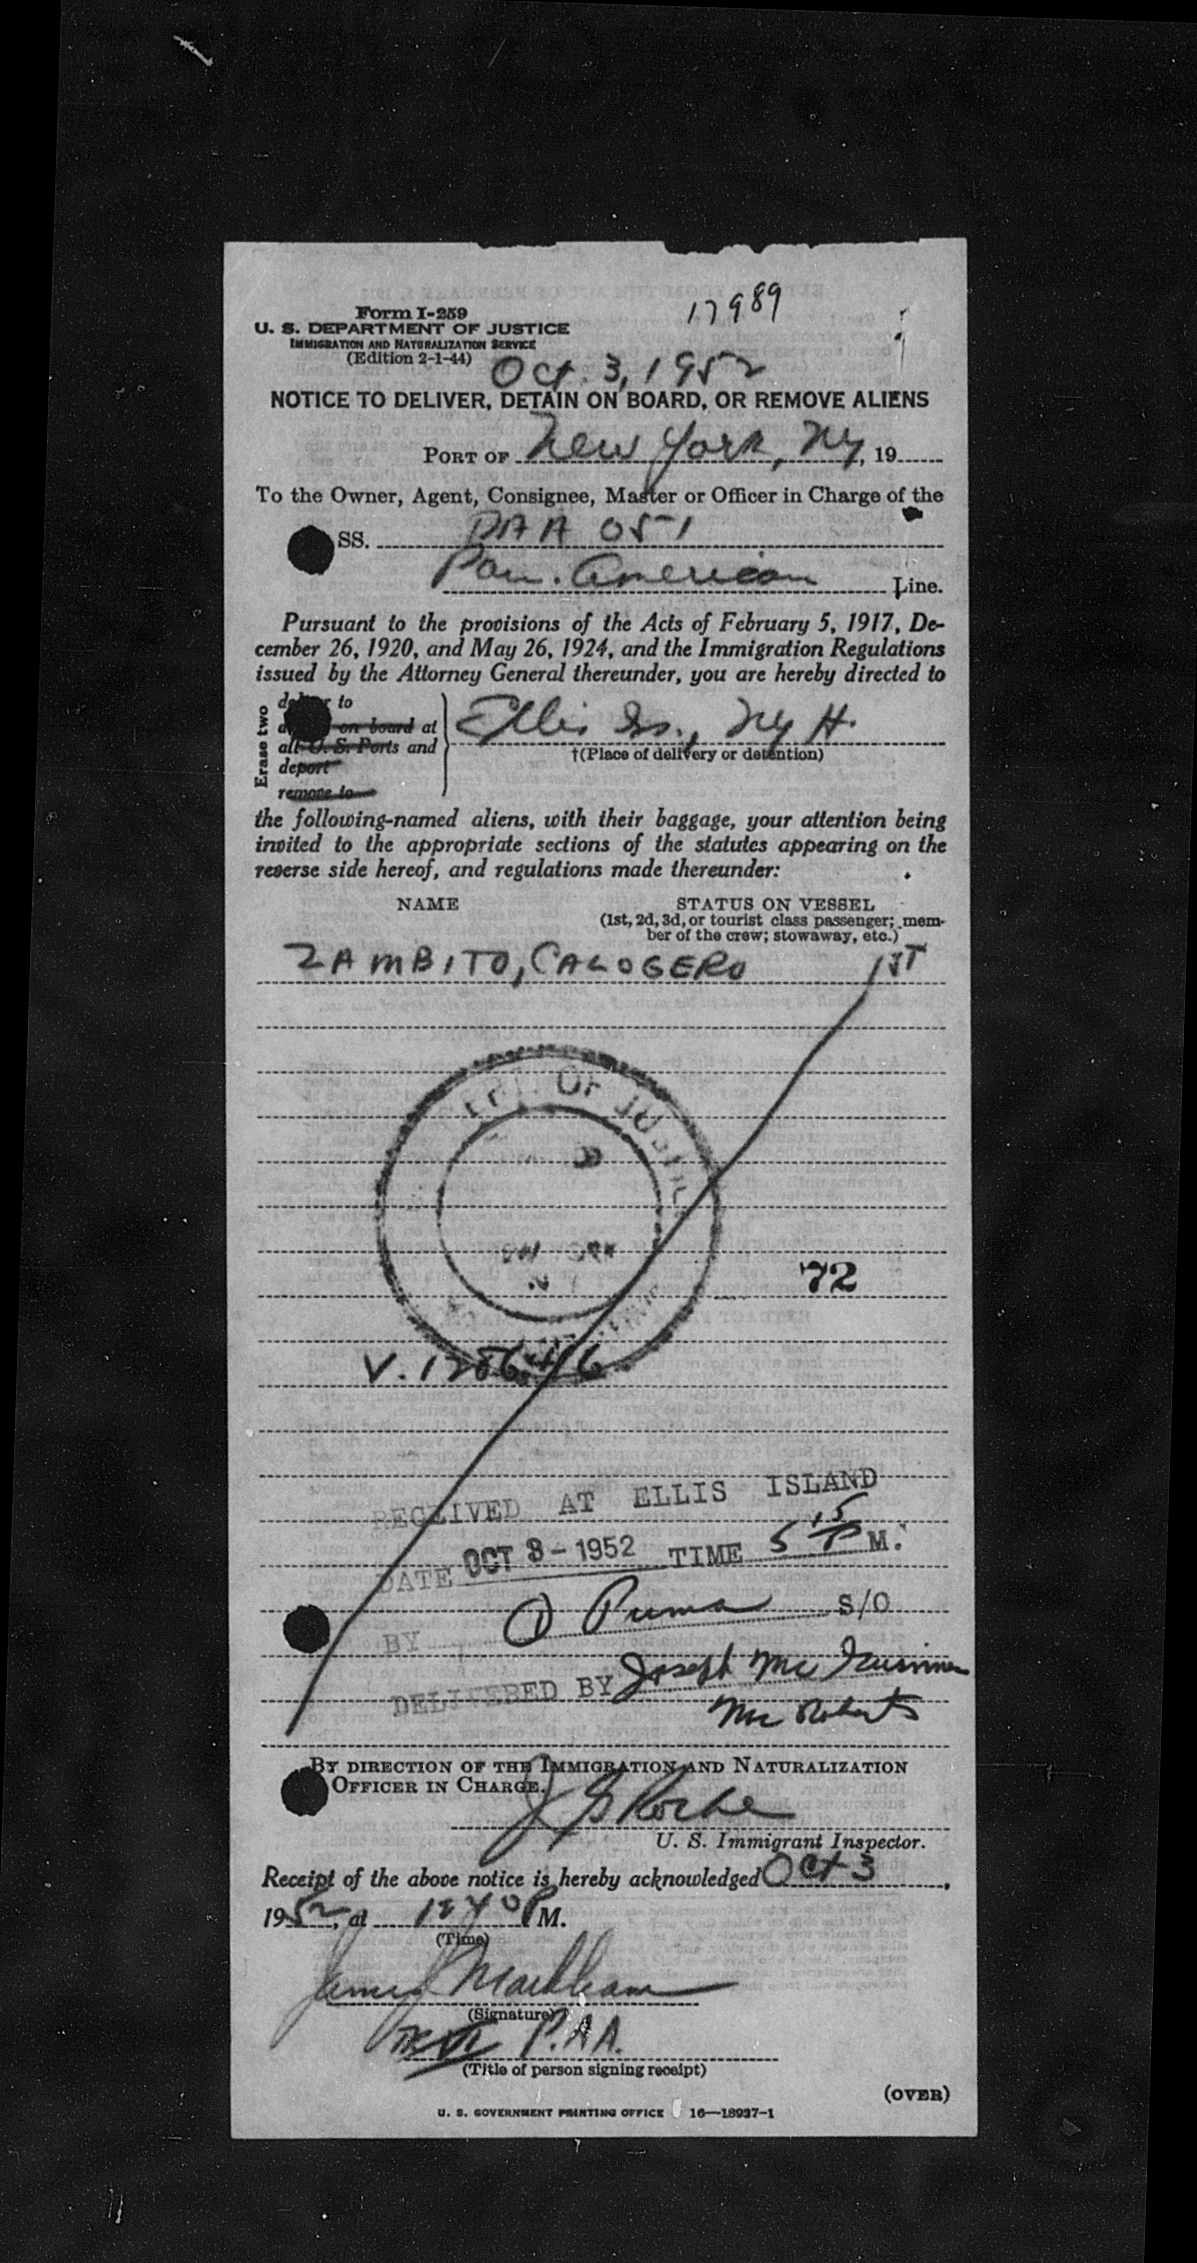 17989
Form I-259
U. S. DEPARTMENT OF JUSTICE
IMMIGRATION AND NATURALIZATION SERVICE
(Edition 2-1-44)
Oct. 3, 1952
NOTICE TO DELIVER, DETAIN ON BOARD, OR REMOVE ALIENS
PORT OF New York, NY, 19
To the Owner, Agent, Consignee, Master or Officer in Charge of the
SS. PAA 051
Pan. American Line.
Pursuant to the provisions of the Acts of February 5, 1917, De-
cember 26, 1920, and May 26, 1924, and the Immigration Regulations
issued by the Attorney General thereunder, you are hereby directed to
Erase two
deliver to
on board at
all U. S. Ports and
deport
remove to
Ellis Is., NY H.
†(Place of delivery or detention)
the following-named aliens, with their baggage, your attention being
invited to the appropriate sections of the statutes appearing on the
reverse side hereof, and regulations made thereunder:
NAME STATUS ON VESSEL
(1st, 2d, 3d, or tourist class passenger; mem-
ber of the crew; stowaway, etc.)
ZAMBITO, CALOGERO 1ST
OF JUSTICE
72
RECEIVED AT ELLIS ISLAND
DATE OCT 3 - 1952 TIME 5 15 P M.
BY Puma S/O
DELIVERED BY Joseph Mc
Mc Roberts
BY DIRECTION OF THE IMMIGRATION AND NATURALIZATION
OFFICER IN CHARGE.
J G Roche
U. S. Immigrant Inspector.
Receipt of the above notice is hereby acknowledged Oct 3,
1952, at 1240 P M.
(Time)
James Markham
(Signature)
P.A.A.
(Title of person signing receipt)
(OVER)
U. S. GOVERNMENT PRINTING OFFICE 16—18937-1